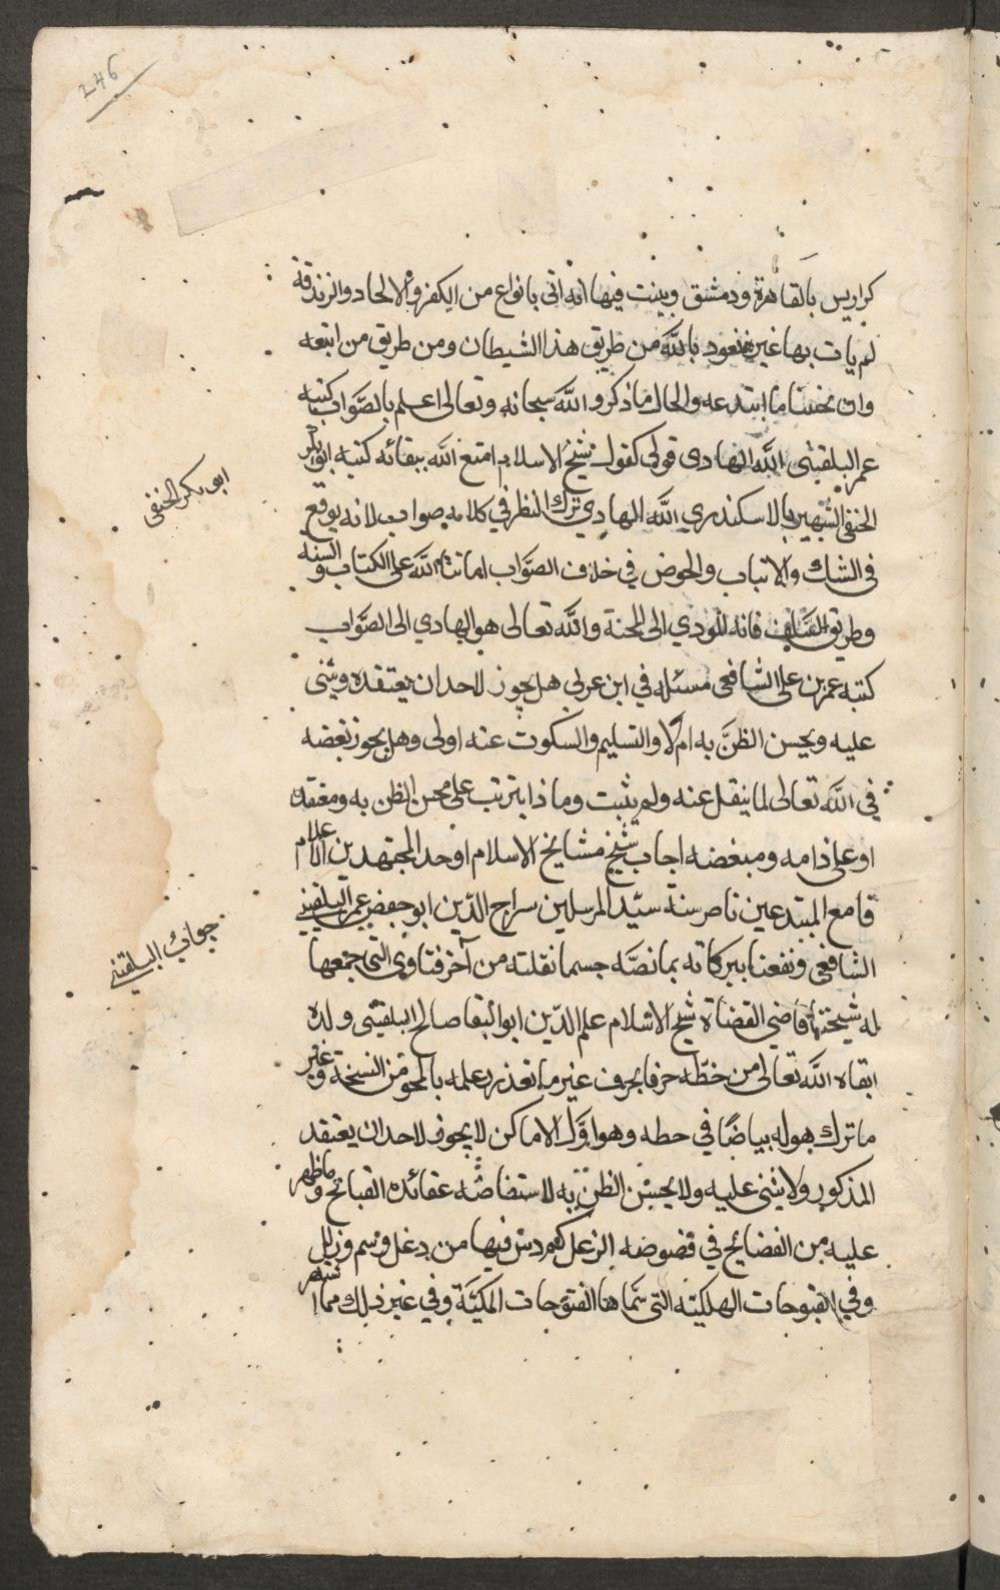 246
كراريس بالقاهرة ودمشق وبينت فيها انه اتى بانواع من الكفر والالحاد والزندقة
لم يات بها غيره فنعوذ بالله من طريق هذا الشيطان ومن طريق من اتبعه
وان ما ابتدعه والحال ما ذكر والله سبحانه وتعالى اعلم بالصواب كتبه
عمر البلقينى الله الهادى قولى كقول شيخ الاسلام امتع الله ببقائه كتبه ابو بكر
الحنفى الشهير بالاسكندري الله الهادي ترك النظر في كلامه صواب لانه يوقع
فى الشك والارتياب والخوض في خلاف الصواب اماتنا الله على الكتاب والسنه
وطريق السلف فانه المودي الى الجنة والله تعالى هو الهادي الى الصواب
كتبه عمر بن على الشافعى مسئله في ابن عربى هل يجوز لاحد ان يعتقده ويثنى
عليه ويحسن الظن به ام لا والتسليم والسكوت عنه اولى وهل يجوز بغضه
في الله تعالى لما ينقل عنه ولم يثبت وما ذا يترتب على محسن الظن به ومعتقده
او على ذامه ومبغضه اجاب شيخ مشايخ الاسلام اوحد المجتهدين الاعلام
قامع المبتدعين ناصر سنة سيد المرسلين سراج الدين ابو حفص عمر البلقينى
الشافعى ونفعنا ببركاته بما نصه حسما نقلته من آخر فتاوى التى جمعها
له شيختنا قاضى القضاة شيخ الاسلام علم الدين ابو البقا صالح البلقينى ولده
ابقاه الله تعالى من خطه حرفا بحرف غير ما تعذر علمه بالمحو من النسخة وغير
ما ترك هو له بياضا في خطه وهو اول الاماكن لا يجوز لاحد ان يعتقد
المذكور ولا يثنى عليه ولا يحسن الظن به لاستفاضة عقائده القبائح وما ظهر
عليه من الفضائح في فصوصه الزعل كم دس فيها من دغل وسم وزلل
وفي القبوحات الهلكيته التى سماها الفتوحات المكية وفي غير ذلك مما اشتهر
ابو بكر الحنفى
جواب البلقينى